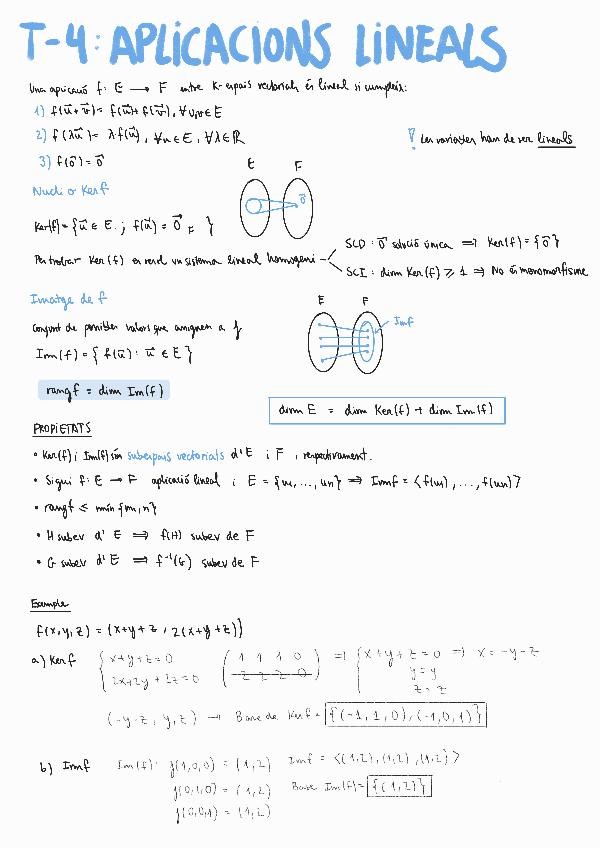 T-4: APLICACIONS LINEALS
Una aplicació f: E → F entre K-espais vectorials és lineal si compleix:
1) f(u⃗+v⃗) = f(u⃗)+f(v⃗), ∀u,v∈E
2) f(λu⃗) = λf(u⃗), ∀u∈E, ∀λ∈ℝ
! Les variables han de ser lineals
3) f(0⃗) = 0⃗
E F
0⃗
Nucli o Ker f
Ker(f) = {u⃗ ∈ E ; f(u⃗) = 0⃗_F }
Per trobar Ker(f) es resol un sistema lineal homogeni
SCD: 0⃗ solució única ⇒ Ker(f) = {0⃗}
SCI: dim Ker(f) ≥ 1 ⇒ No és monomorfisme
Imatge de f
E F
Imf
Conjunt de possibles valors que assignen a f
Im(f) = { f(u⃗) : u⃗ ∈ E }
rang f = dim Im(f)
dim E = dim Ker(f) + dim Im(f)
PROPIETATS
• Ker(f) i Im(f) són subespais vectorials d'E i F, respectivament.
• Sigui f: E → F aplicació lineal i E = {u₁, ..., uₙ} ⇒ Imf = <f(u₁), ..., f(uₙ)>
• rangf ≤ mín{m,n}
• H subev d'E ⇒ f(H) subev de F
• G subev d'E ⇒ f⁻¹(G) subev de F
Example
f(x,y,z) = (x+y+z, 2(x+y+z))
a) Ker f { x+y+z=0 ( 1 1 1 0 ) ⇒ { x+y+z=0 ⇒ x = -y-z
2x+2y+2z=0 2 2 2 0 y=y
z=z
(-y-z, y, z) → Base de Ker f = {(-1,1,0),(-1,0,1)}
b) Imf Im(f): f(1,0,0) = (1,2) Imf = <(1,2),(1,2),(1,2)>
f(0,1,0) = (1,2) Base Im(f) = {(1,2)}
f(0,0,1) = (1,2)